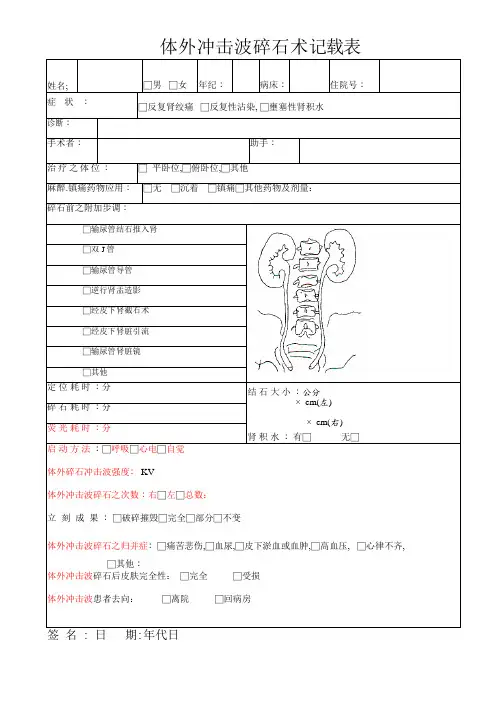 体外冲击波碎石术记载表
姓名; □男 □女 年纪： 病床： 住院号：
症 状 ： □反复肾绞痛 □反复性沾染, □壅塞性肾积水
诊断：
手术者： 助手：
治疗之体位： □ 平卧位,□俯卧位,□其他
麻醉.镇痛药物应用： □无 □沉着 □镇痛□其他药物及剂量:
碎石前之附加步调：
□输尿管结石推入肾
□双 J 管
□输尿管导管
□逆行肾盂造影
□经皮下肾截石术
□经皮下肾脏引流
□输尿管肾脏镜
□其他
定位耗时：分
碎石耗时：分
荧光耗时：分
结石大小：公分
× cm(左)
× cm(右)
肾积水：有□ 无□
启动方法：□呼吸□心电□自觉
体外碎石冲击波强度： KV
体外冲击波碎石之次数：右□左□总数;
立刻成果：□破碎摧毁□完全□部分□不变
体外冲击波碎石之归并症：□痛苦悲伤,□血尿,□皮下淤血或血肿,□高血压, □心律不齐,
□其他：
体外冲击波碎石后皮肤完全性： □完全 □受损
体外冲击波患者去向： □离院 □回病房
签 名 : 日 期:年代日